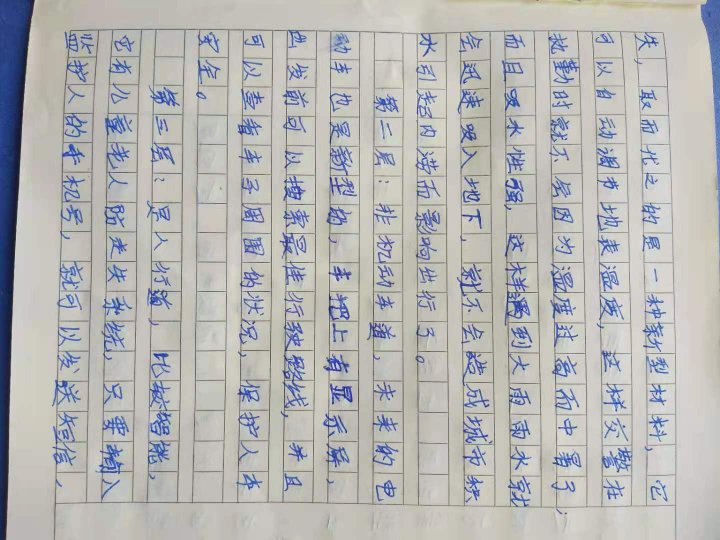 失，取而代之的是一种新型材料，它
可以自动调节地表温度，这样交警在
执勤时就不会因为温度过高而中暑了；
而且吸水性强，这样遇到大雨雨水就
会迅速吸入地下，就不会造成城市积
水引起内涝而影响出行了。
第二层：非机动车道，未来的电
动车也是新型的，车把上有显示屏，
出发前可以搜索最佳行驶路线，并且
可以查看车子周围的状况，保护人车
安全。
第三层：是人行道，比较智能，
它有儿童老人防走失系统，只要输入
监护人的手机号，就可以发送短信，